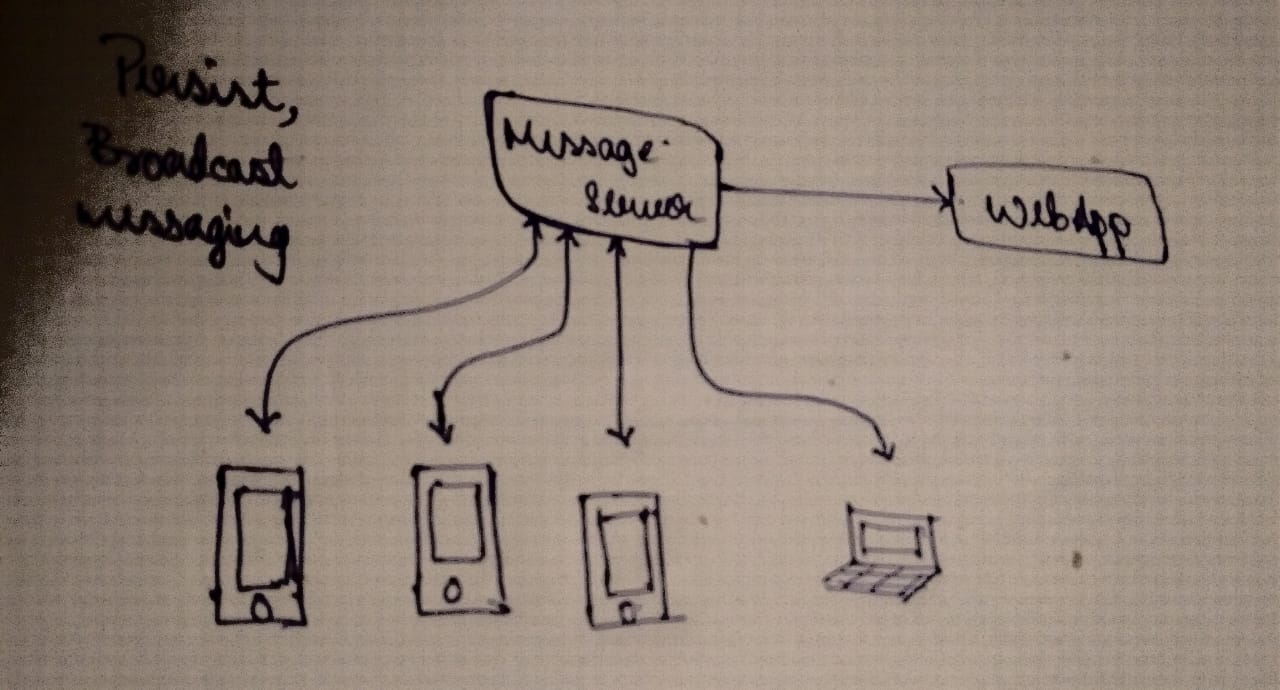 Persist,
Broadcast
messaging
Message
Server
WebApp